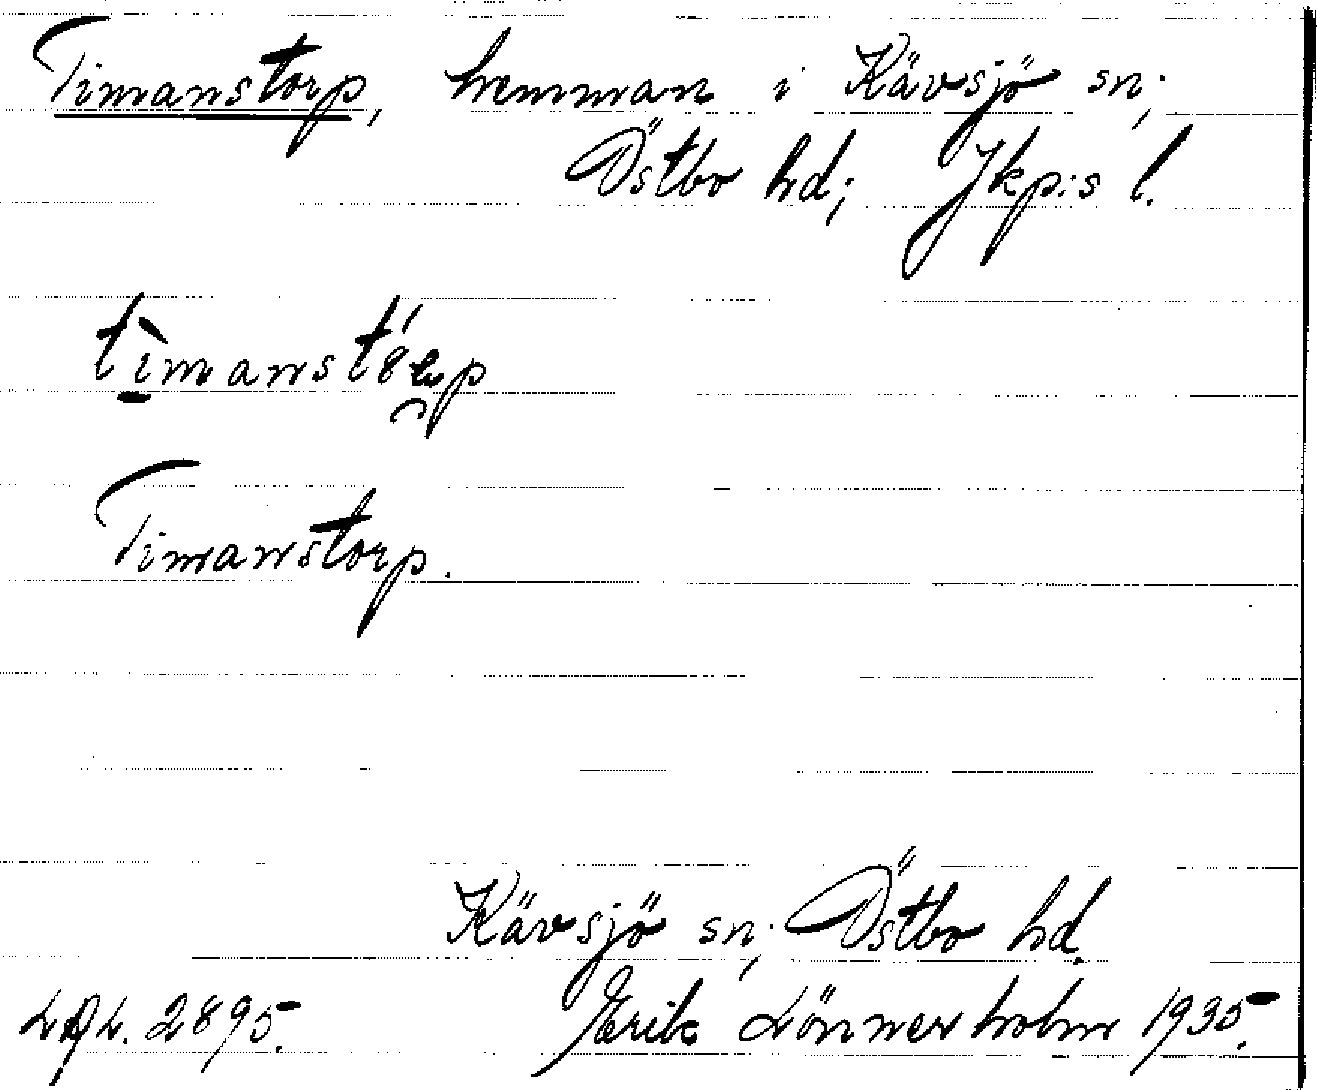 Timanstorp, hemman i Kävsjö sn;
Östbo hd; Jkp:s l.
Timanstorp.
Kävsjö sn; Östbo hd.
2895. Erik Lönnerholm 1935.